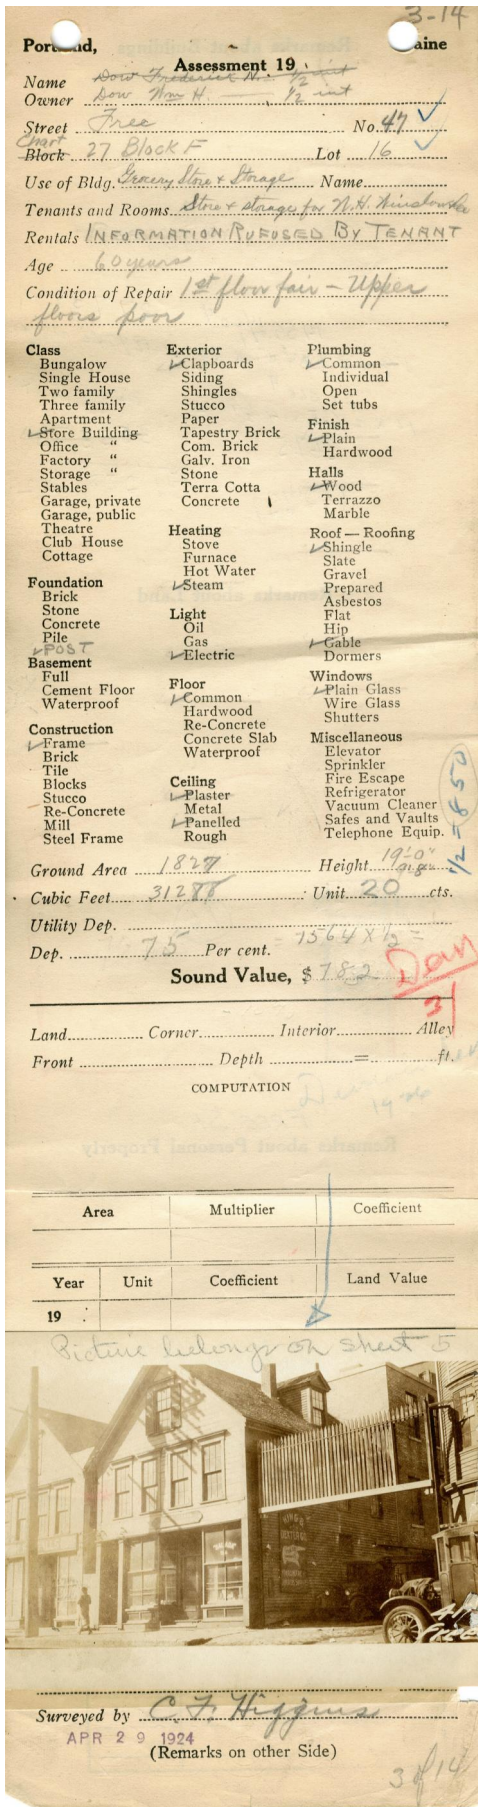 3-14
Portland, Maine
Assessment 19
Name Dow Frederick N. — 1/2 int
Owner Dow Wm H. — 1/2 int
Street Free No. 47
Chart
Block 27 Block F Lot 16
Use of Bldg. Grocery Store & Storage Name
Tenants and Rooms Store & storage for N.H. Winslow
Rentals INFORMATION RUFUSED BY TENANT
Age 60 years
Condition of Repair 1st floor fair – Upper
floors poor
Class
Bungalow
Single House
Two family
Three family
Apartment
✓Store Building
Office "
Factory "
Storage "
Stables
Garage, private
Garage, public
Theatre
Club House
Cottage
Foundation
Brick
Stone
Concrete
Pile
✓POST
Basement
Full
Cement Floor
Waterproof
Construction
✓Frame
Brick
Tile
Blocks
Stucco
Re-Concrete
Mill
Steel Frame
Exterior
✓Clapboards
Siding
Shingles
Stucco
Paper
Tapestry Brick
Com. Brick
Galv. Iron
Stone
Terra Cotta
Concrete
Heating
Stove
Furnace
Hot Water
✓Steam
Light
Oil
Gas
✓Electric
Floor
✓Common
Hardwood
Re-Concrete
Concrete Slab
Waterproof
Ceiling
✓Plaster
Metal
✓Panelled
Rough
Plumbing
✓Common
Individual
Open
Set tubs
Finish
✓Plain
Hardwood
Halls
✓Wood
Terrazzo
Marble
Roof — Roofing
✓Shingle
Slate
Gravel
Prepared
Asbestos
Flat
Hip
✓Gable
Dormers
Windows
✓Plain Glass
Wire Glass
Shutters
Miscellaneous
Elevator
Sprinkler
Fire Escape
Refrigerator
Vacuum Cleaner
Safes and Vaults
Telephone Equip.
1/2 = 850
Ground Area 1827 Height 19'-0"
Cubic Feet 31288 Unit 20 cts.
Utility Dep.
Dep. 75 Per cent. = 1564 x 1/2 =
Sound Value, $ 782
31
Land Corner Interior Alley
Front Depth = ft.
COMPUTATION
Area Multiplier Coefficient
Year Unit Coefficient Land Value
19
Picture belongs on sheet 5
Surveyed by C. F. Higgins
APR 29 1924
(Remarks on other Side)
3 of 14